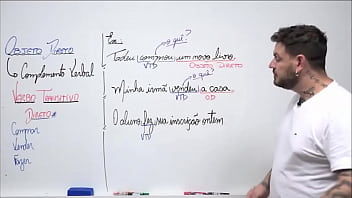 Objeto Direto
Complemento Verbal
Verbo Transitivo
Direto
Comprar
Vender
Fazer
Ex.
o quê?
Tadeu comprou um novo livro.
VTD OBJETO DIRETO
o quê?
Minha irmã vendeu a casa
VTD OD
O aluno fez sua inscrição ontem
VTD